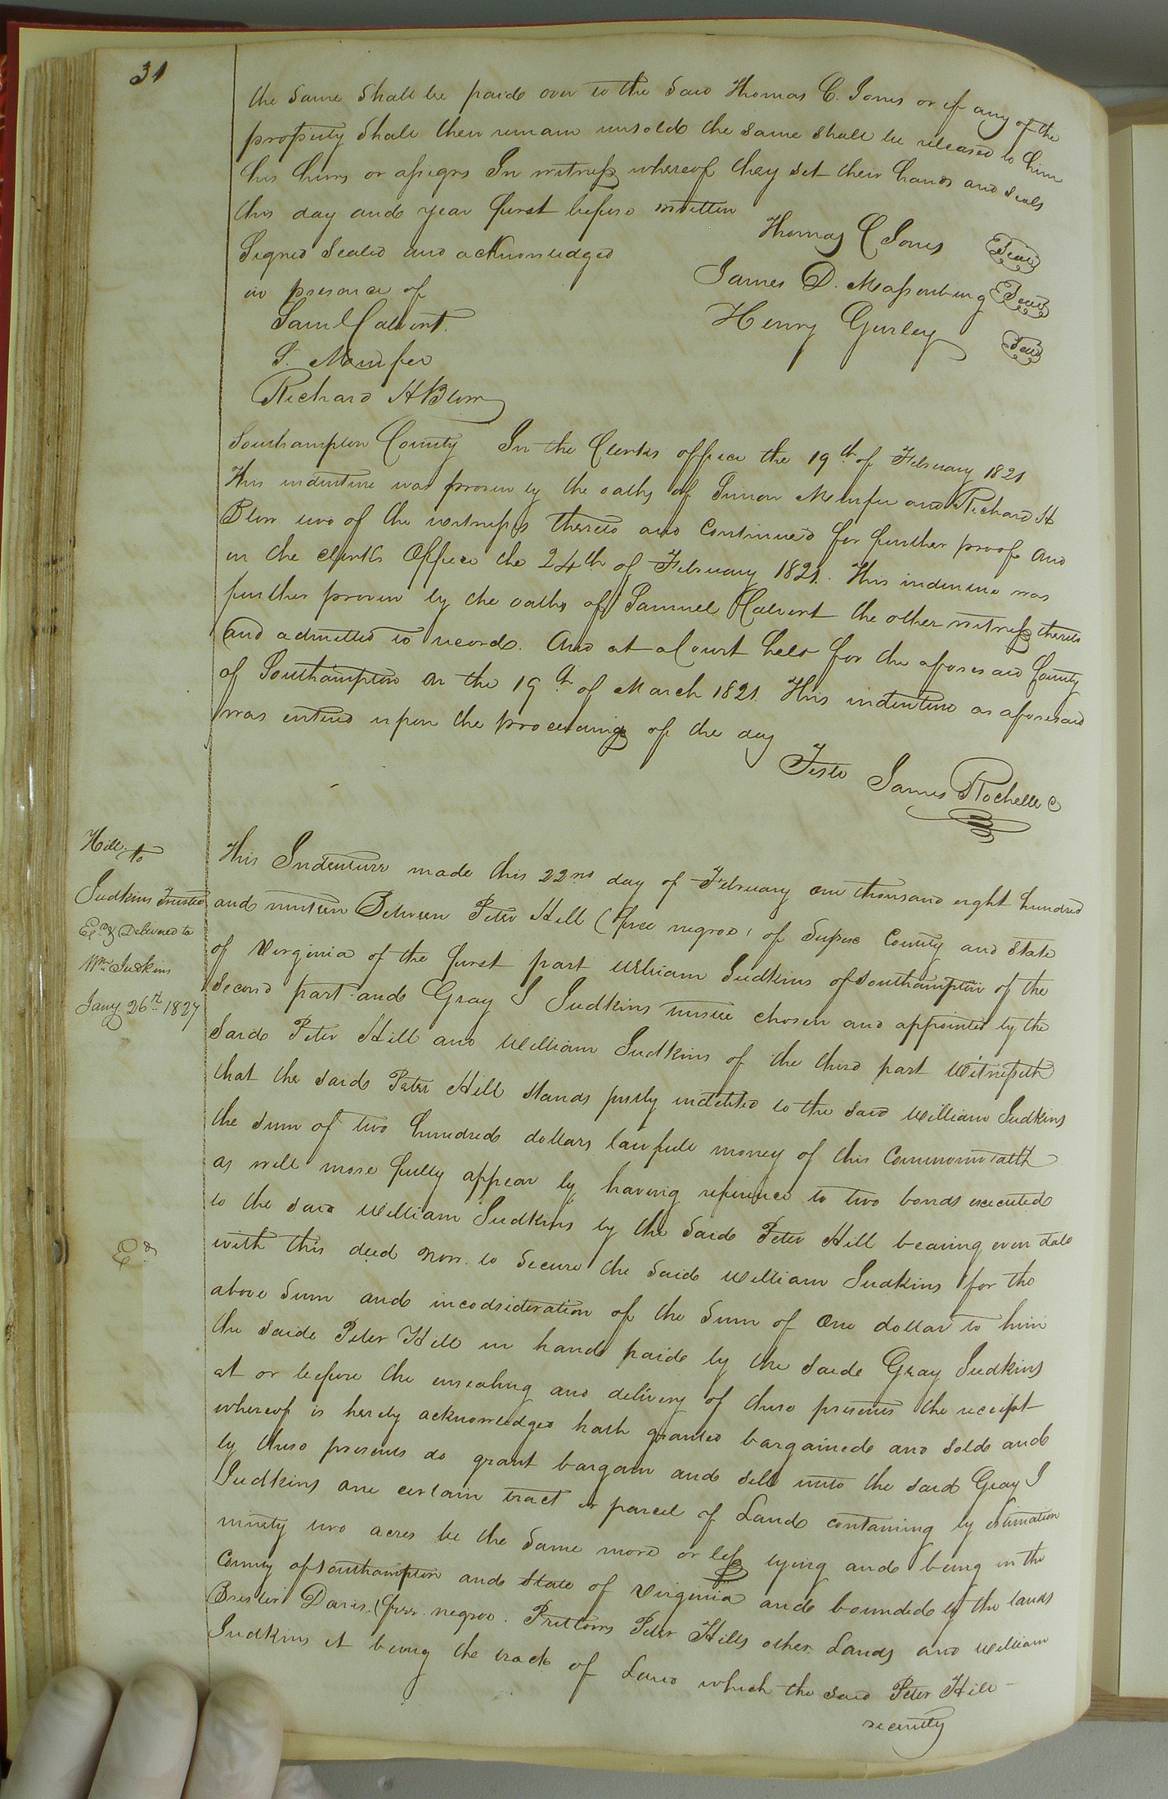 31
the same shall be paid over to the said Thomas C. Jones or if any of the
property shall then remain unsold the same shall be released to him
his heirs or assigns In witness whereof they set their hands and seals
this day and year first before written
Thomas C Jones Seal
Signed Sealed and acknowledged
James D. Massenburg Seal
in presence of
Henry Gurley Seal
Saml Calvert.
S. Murfee
Richard H Blow
Southampton County In the Clerks office the 19th of February 1821
This indenture was proven by the oaths of Simon Murfee and Richard H
Blow two of the witnesses thereto and Continued for further proof And
in the clerks Office the 24th of February 1821. This indenture was
further proven by the oaths of Samuel Calvert the other witness thereto
and admitted to record. And at a Court held for the aforesaid County
of Southampton on the 19th of March 1821 This indenture as aforesaid
was entered upon the proceedings of the day
Teste James Rochelle C
Hill to
Judkins Trustee
Exd & Delivered to
Wm Judkins
Jany 26th 1827
Exd
This Indenture made this 22nd day of February one thousand eight hundred
and ninteen Between Peter Hill (free negroe) of Sussex County and State
of Virginia of the first part William Judkins of Southampton of the
Second part and Gray J Judkins trustee chosen and appointed by the
Said Peter Hill and William Judkins of the third part Witnesseth
that the said Peter Hill stands justly indebted to the said William Judkins
the sum of two hundred dollars lawfull money of this Commonwealth
as will more fully appear by having reference to two bonds executed
to the said William Judkins by the Said Peter Hill bearing even date
with this deed now to Secure the Said William Judkins for the
above Sum and incodsideration of the Sum of One dollar to him
the saide Peter Hill in hand paide by the saide Gray Judkins
at or before the ensealing and delivery of these presents the receipt
whereof is hereby acknowledged hath granted bargained and sold and
by these presents do grant bargain and sell unto the said Gray J
Judkins one certain tract or parcel of Land containing by estimation
ninety two acres be the Same more or less lying and being in the
County of Southampton and State of Virginia and bounded by the lands
Brister Davis (free negroe. Pretlows Peter Hills other Lands and William
Judkins it being the track of Land which the said Peter Hill
recently